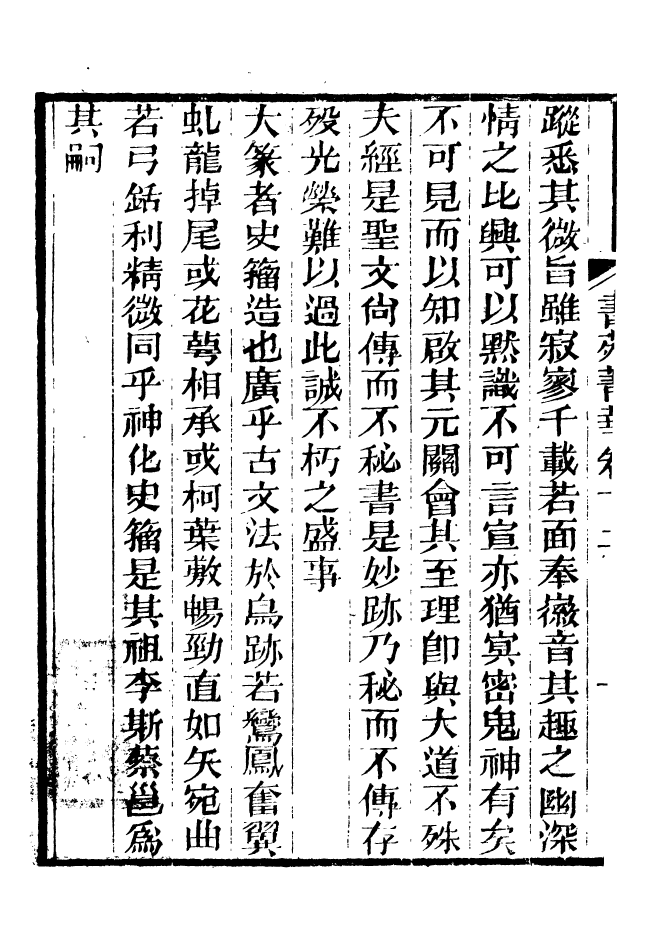 書苑菁華卷十二
蹤悉其微旨雖寂寥千載若面奉徽音其趣之幽深
情之比興可以默識不可言宣亦猶冥密鬼神有矣
不可見而以知啟其元關會其至理卽與大道不殊
夫經是聖文尙傳而不秘書是妙跡乃秘而不傳存
殁光榮難以過此誠不朽之盛事
大篆者史籀造也廣乎古文法於鳥跡若鸞鳳奮翼
虬龍掉尾或花萼相承或柯葉敷暢勁直如矢宛曲
若弓銛利精微同乎神化史籀是其祖李斯蔡邕爲
其嗣